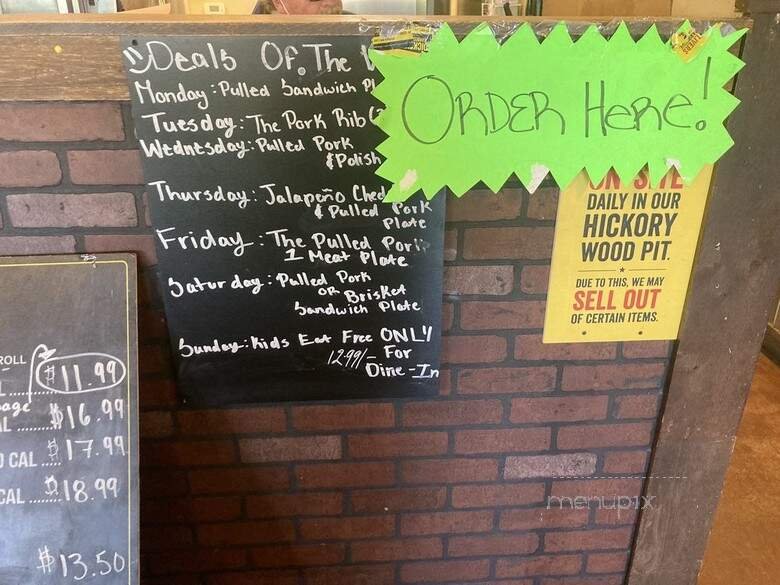 Deals Of The
Monday: Pulled Sandwich
Tuesday: The Pork Rib
Wednesday: Pulled Pork
& Polish
Thursday: Jalapeño
& Pulled Pork
Plate
Friday: The Pulled Pork
1 Meat Plate
Saturday: Pulled Pork
OR Brisket
Sandwich Plate
Sunday: Kids Eat Free ONLY
12.99/- For
Dine-In
ORDER HERE!
ON SITE
DAILY IN OUR
HICKORY
WOOD PIT.
DUE TO THIS, WE MAY
SELL OUT
OF CERTAIN ITEMS.
ROLL
$11.99
$16.99
CAL ..... $17.99
CAL ..... $18.99
$13.50
menupix